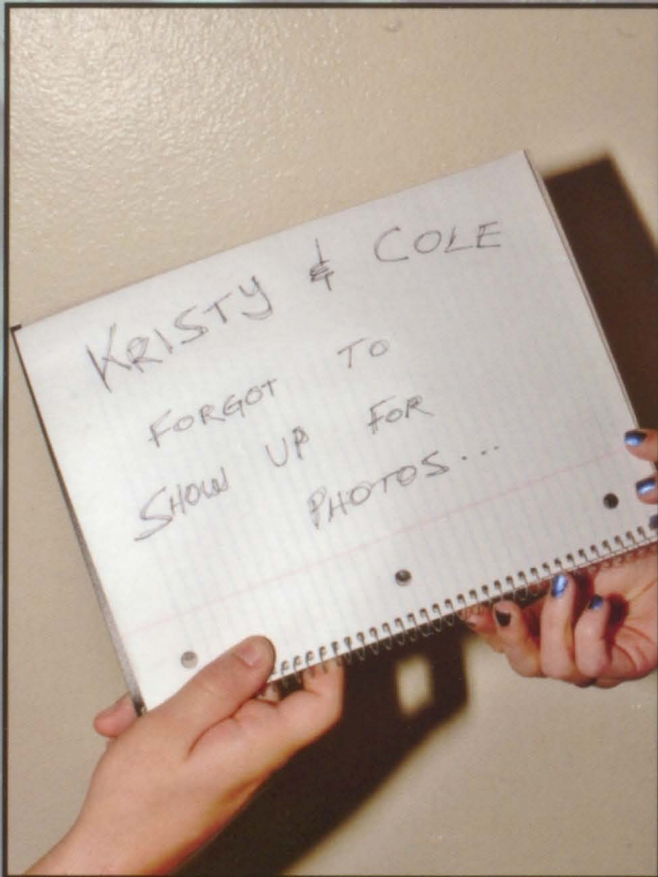 KRISTY & COLE
FORGOT TO
SHOW UP FOR
PHOTOS...